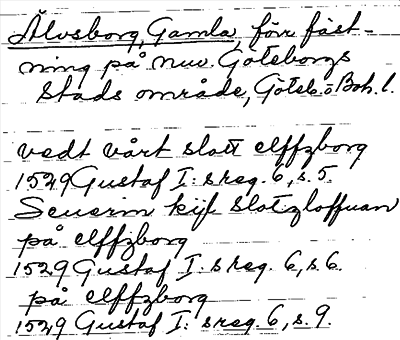 Älvsborg, Gamla, förr fäst-
ning på nuv. Göteborgs
stads område, Göteb. o Boh. l.
vedt vårt slott elffzborg
1529 Gustaf I: s reg. 6, s. 5.
Seuerin kijl slotzloffuan
på elffzborg
1529 Gustaf I: s reg. 6, s. 6.
på elffzborg
1529 Gustaf I: s reg. 6, s. 9.